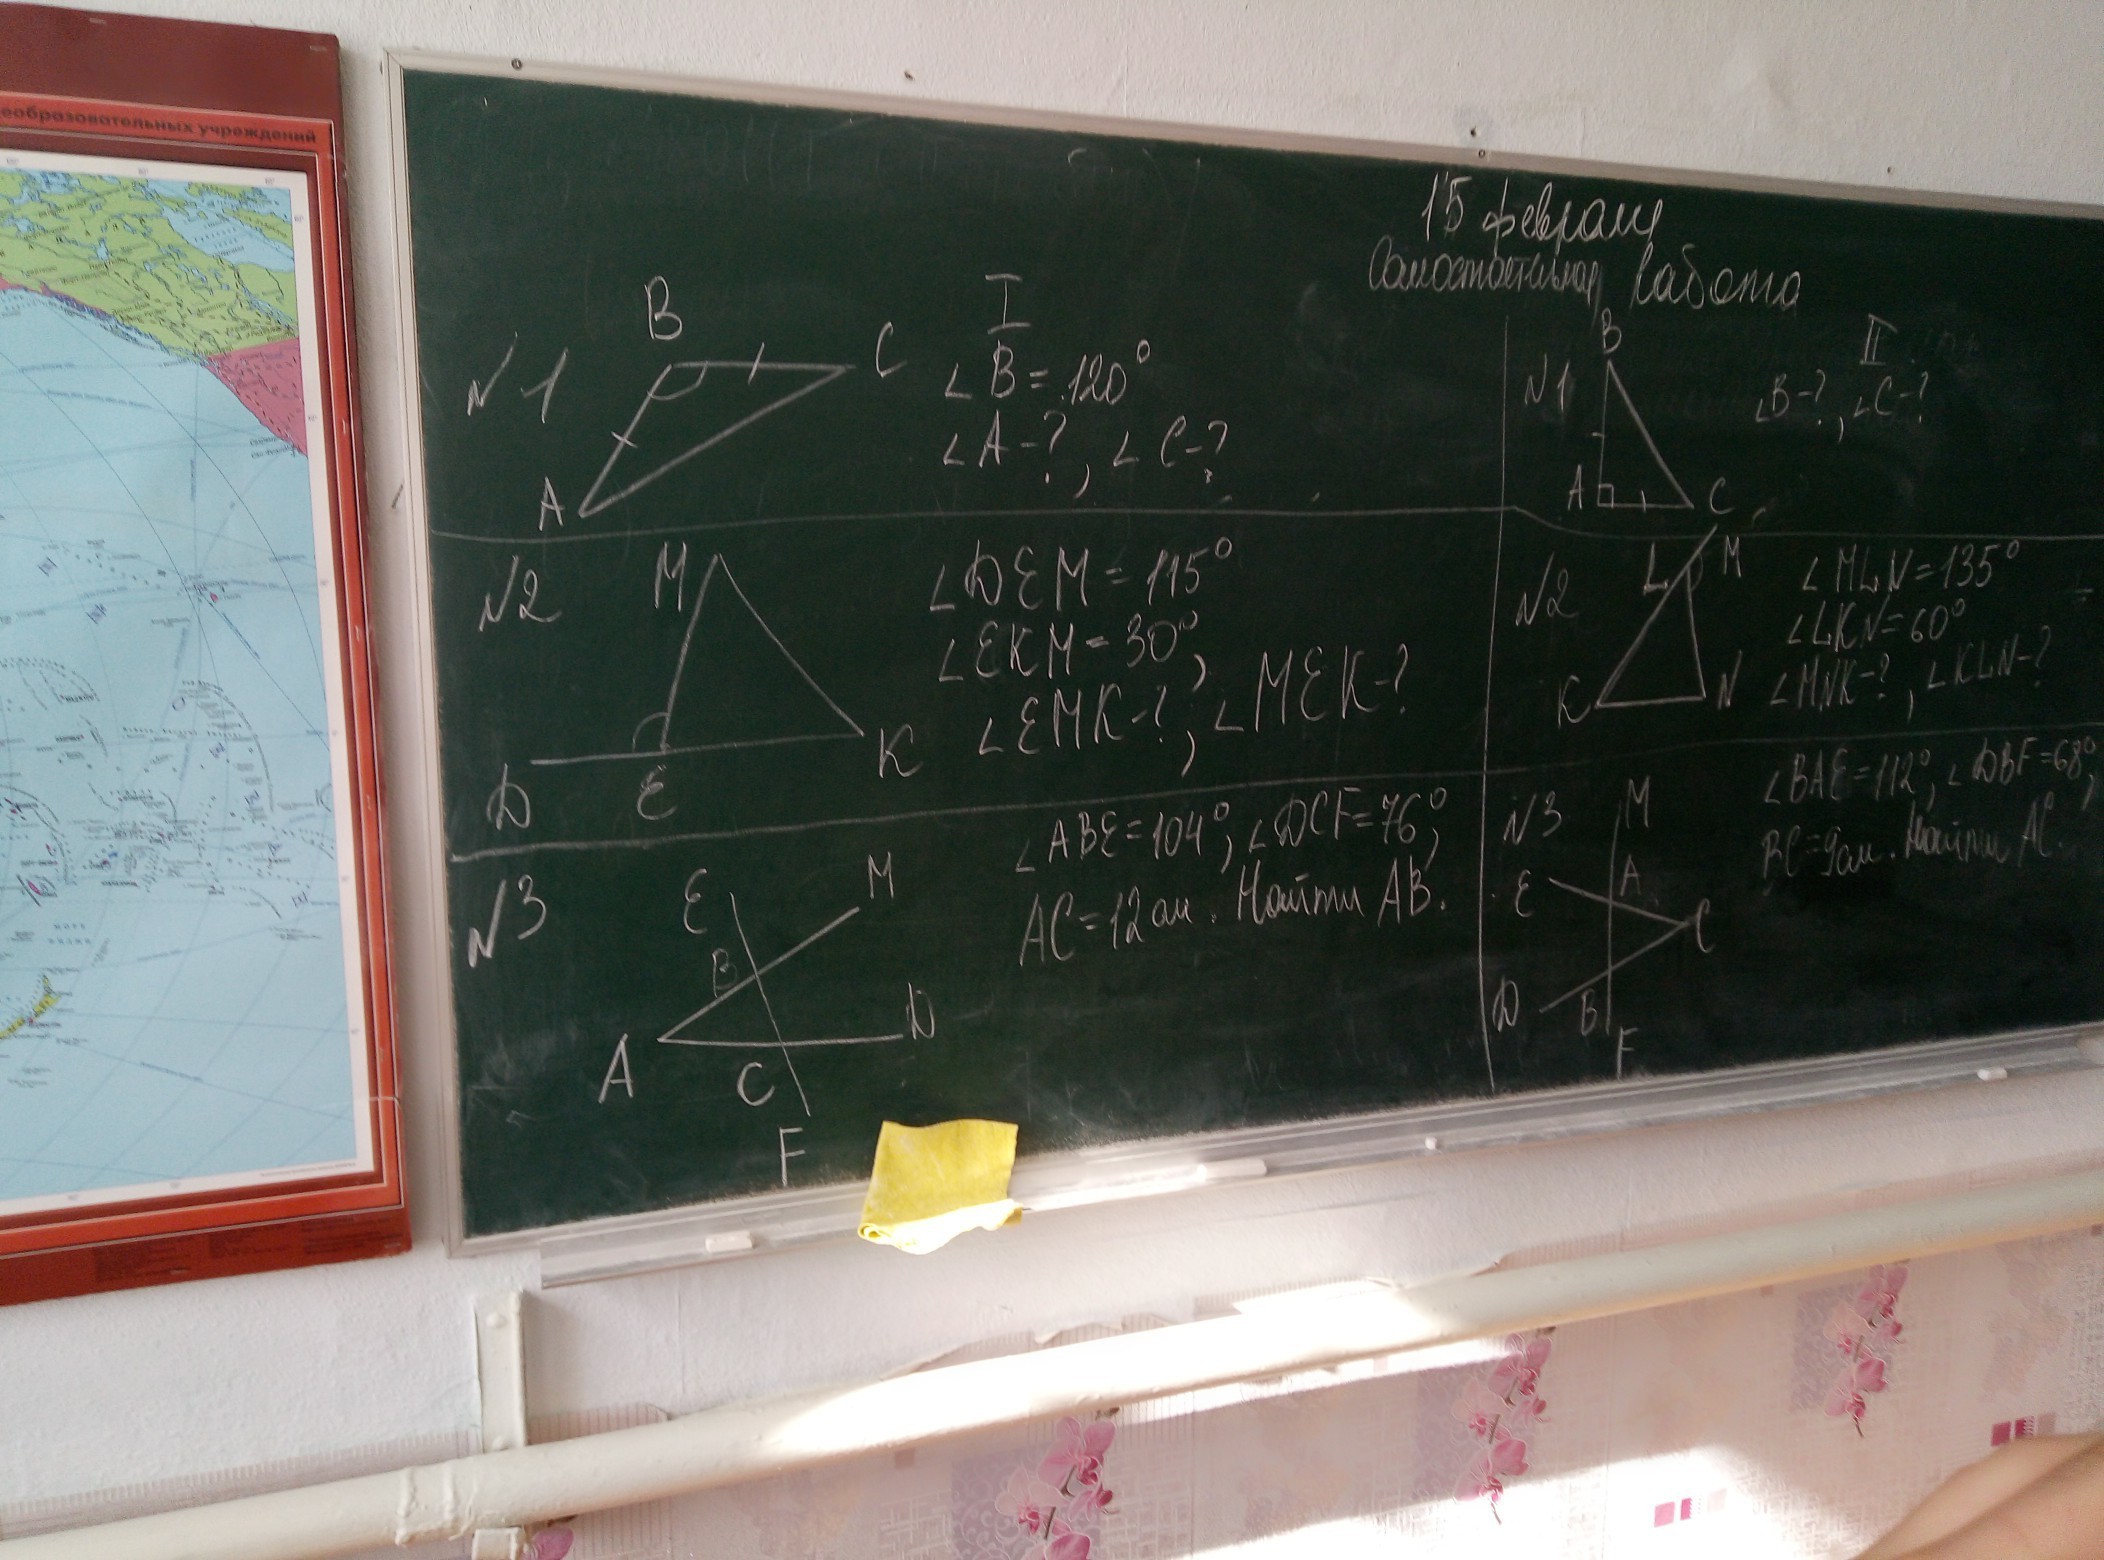 еобразовательных учреждений
15 февраля
Самостоятельная работа
I
№1
B
C
A
∠B = 120°
∠A-?, ∠C-?
№2
M
D
E
K
∠DEM = 115°
∠EKM = 30°,
∠EMK-?, ∠MEK-?
№3
E
M
B
A
C
D
F
∠ABE = 104°, ∠DCF = 76°,
AC = 12 см. Найти AB.
II
№1
B
A
C
∠B-?, ∠C-?
№2
L
M
K
N
∠MLN = 135°
∠LKN = 60°
∠MNK-?, ∠KLN-?
№3
M
E
A
C
D
B
F
∠BAE = 112°, ∠DBF = 68°,
BC = 9 см. Найти AC.